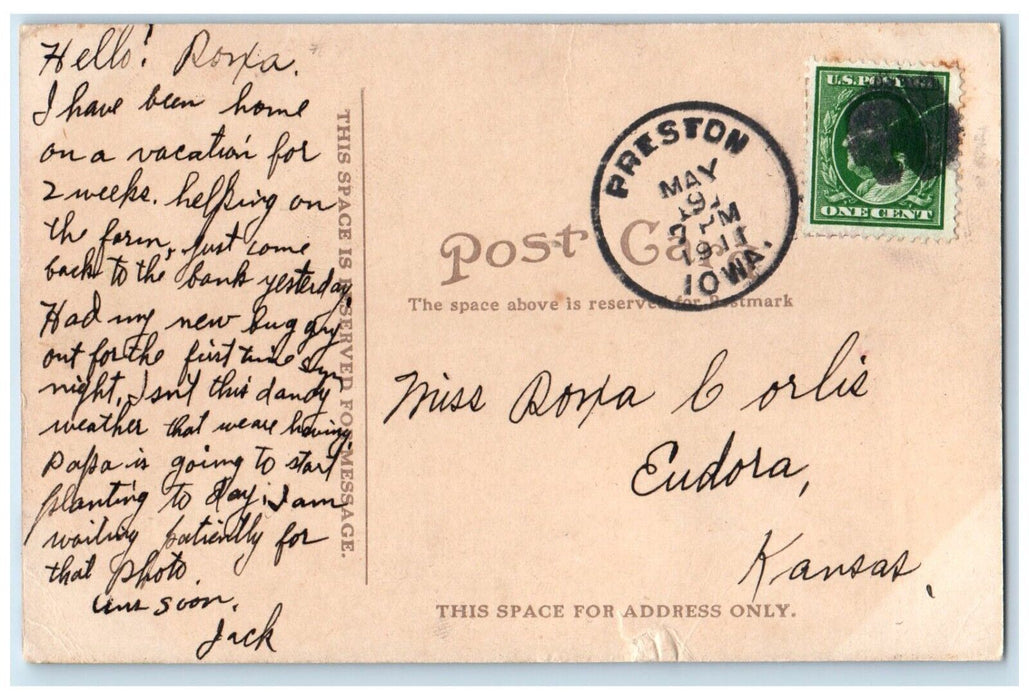 Hello! Roxa.
I have been home
on a vacation for
2 weeks. helping on
the farm, just come
back to the bank yesterday.
Had my new buggy
out for the first time Sun
night, Isn't this dandy
weather that we are having
Papa is going to start
planting to day. I am
waiting patiently for
that photo.
Ans soon.
Jack
THIS SPACE IS RESERVED FOR MESSAGE.
Post Card
The space above is reserved for Postmark
PRESTON
MAY
PM
1911
IOWA.
U.S. POSTAGE
ONE CENT
Miss Roxa Corlis
Eudora,
Kansas.
THIS SPACE FOR ADDRESS ONLY.